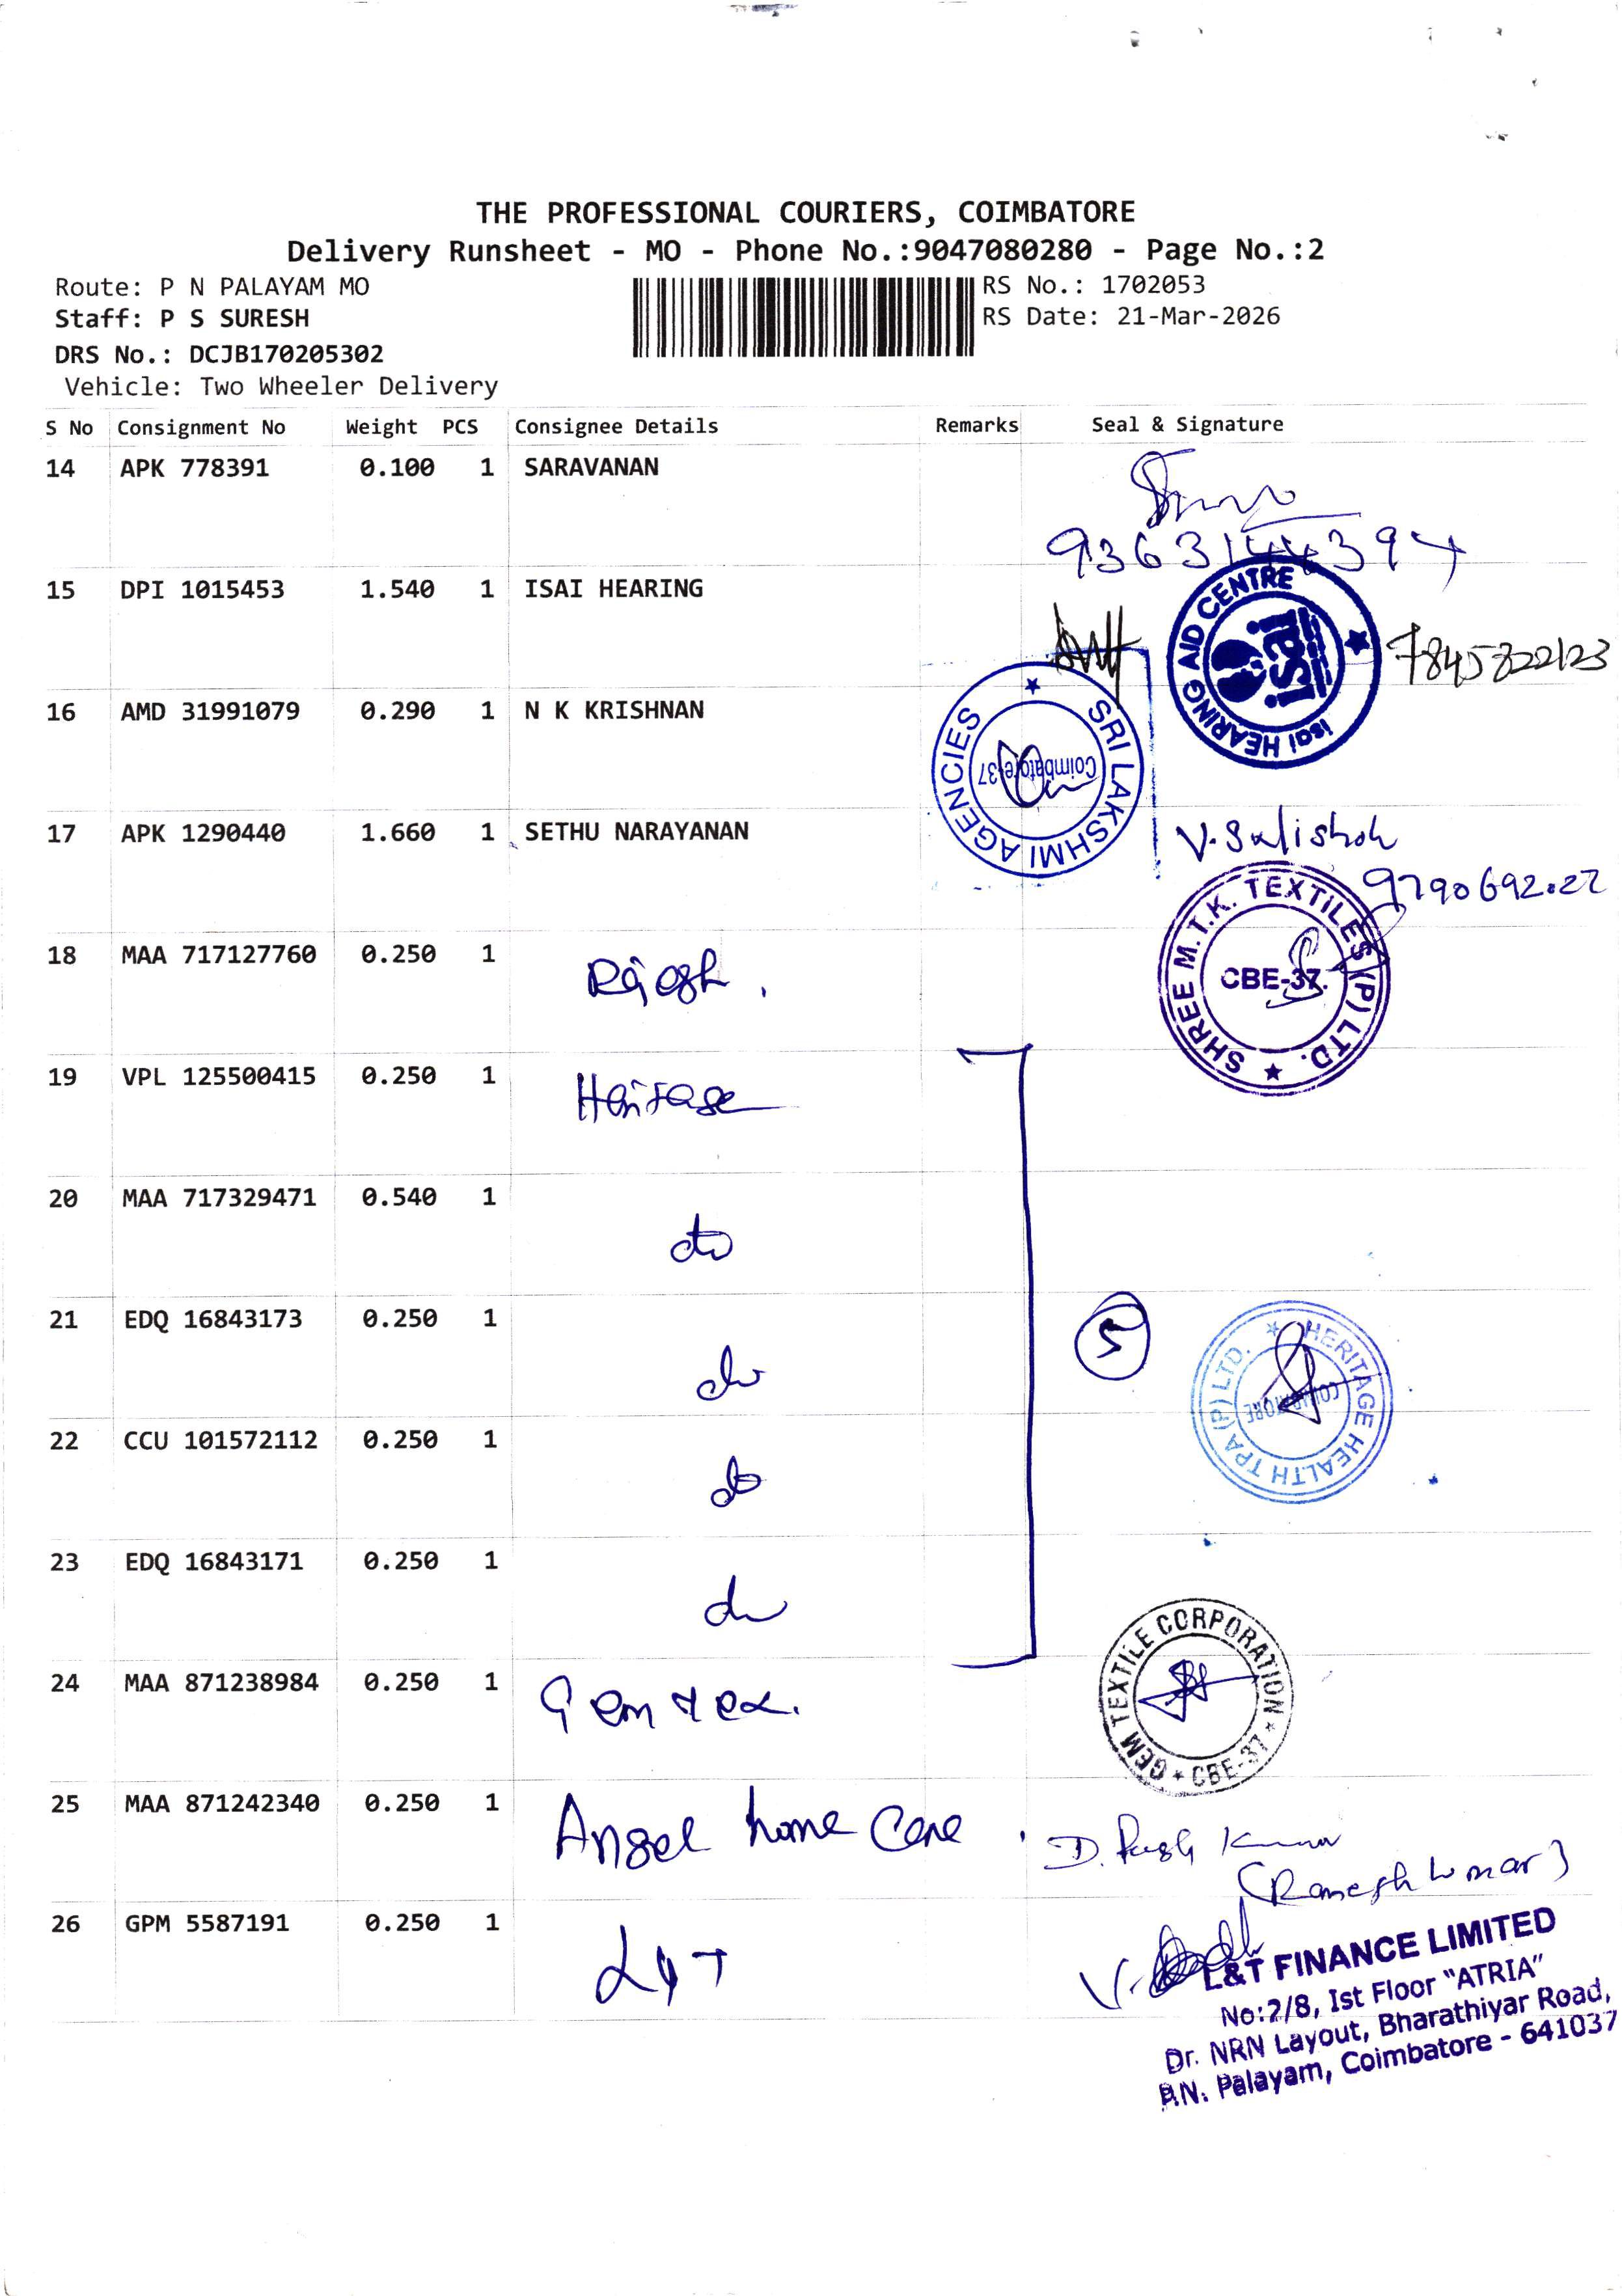 THE PROFESSIONAL COURIERS, COIMBATORE
Delivery Runsheet - MO - Phone No.:9047080280 - Page No.:2
Route: P N PALAYAM MO
RS No.: 1702053
Staff: P S SURESH
RS Date: 21-Mar-2026
DRS No.: DCJB170205302
Vehicle: Two Wheeler Delivery
S No Consignment No Weight PCS Consignee Details Remarks Seal & Signature
14 APK 778391 0.100 1 SARAVANAN
9363144394
15 DPI 1015453 1.540 1 ISAI HEARING
isai HEARING AID CENTRE
isai
7845822123
16 AMD 31991079 0.290 1 N K KRISHNAN
SRI LAKSHMI AGENCIES
Coimbatore-37
17 APK 1290440 1.660 1 SETHU NARAYANAN
SHREE M.T.K. TEXTILES (P) LTD.
CBE-37.
18 MAA 717127760 0.250 1
19 VPL 125500415 0.250 1 Heritage
20 MAA 717329471 0.540 1 do
21 EDQ 16843173 0.250 1 do
5
HERITAGE HEALTH TPA (P) LTD.
COIMBATORE
22 CCU 101572112 0.250 1 do
23 EDQ 16843171 0.250 1 do
24 MAA 871238984 0.250 1 Gem tex.
GEM TEXTILE CORPORATION
CBE-37
25 MAA 871242340 0.250 1 Angel home Care
(Ramesh kumar)
26 GPM 5587191 0.250 1 L&T
L&T FINANCE LIMITED
No:2/8, Ist Floor "ATRIA"
Dr. NRN Layout, Bharathiyar Road,
P.N. Palayam, Coimbatore - 641037